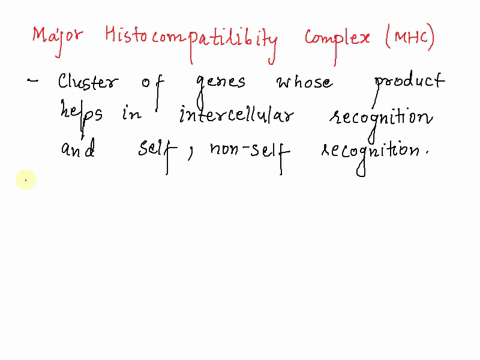 Major Histocompatilibity Complex (MHC)
- Cluster of genes whose product
helps in intercellular recognition
and self, non-self recognition.